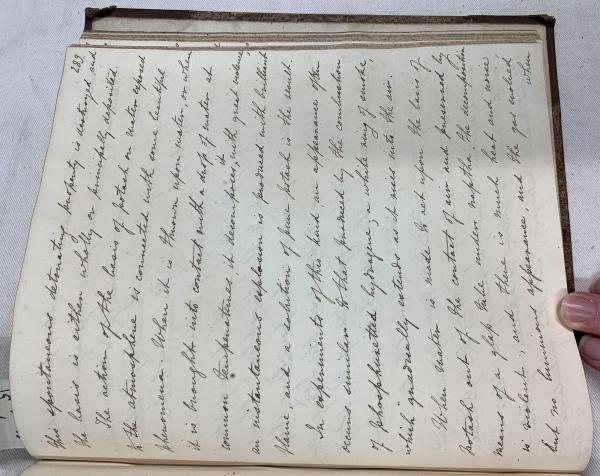 283
this spontaneous detonating property is destroyed, and
the basis is either wholly or principally deposited.
The action of the basis of potash on water exposed
to the atmosphere is connected with some beautiful
phenomena. When it is thrown upon water, or when
it is brought into contact with a drop of water at
common temperatures, it decomposes it with great violence,
an instantaneous explosion is produced with brilliant
flame, and a solution of pure potash is the result.
In experiments of this kind, an appearance often
occurs similar to that produced by the combustion
of phosphuretted hydrogene; a white ring of smoke,
which gradually extends as it rises into the air.
When water is made to act upon the basis of
potash out of the contact of air and preserved by
means of a glass tube under naptha, the decomposition
is violent; and there is much heat and noise,
but no luminous appearance, and the gas evolved, when